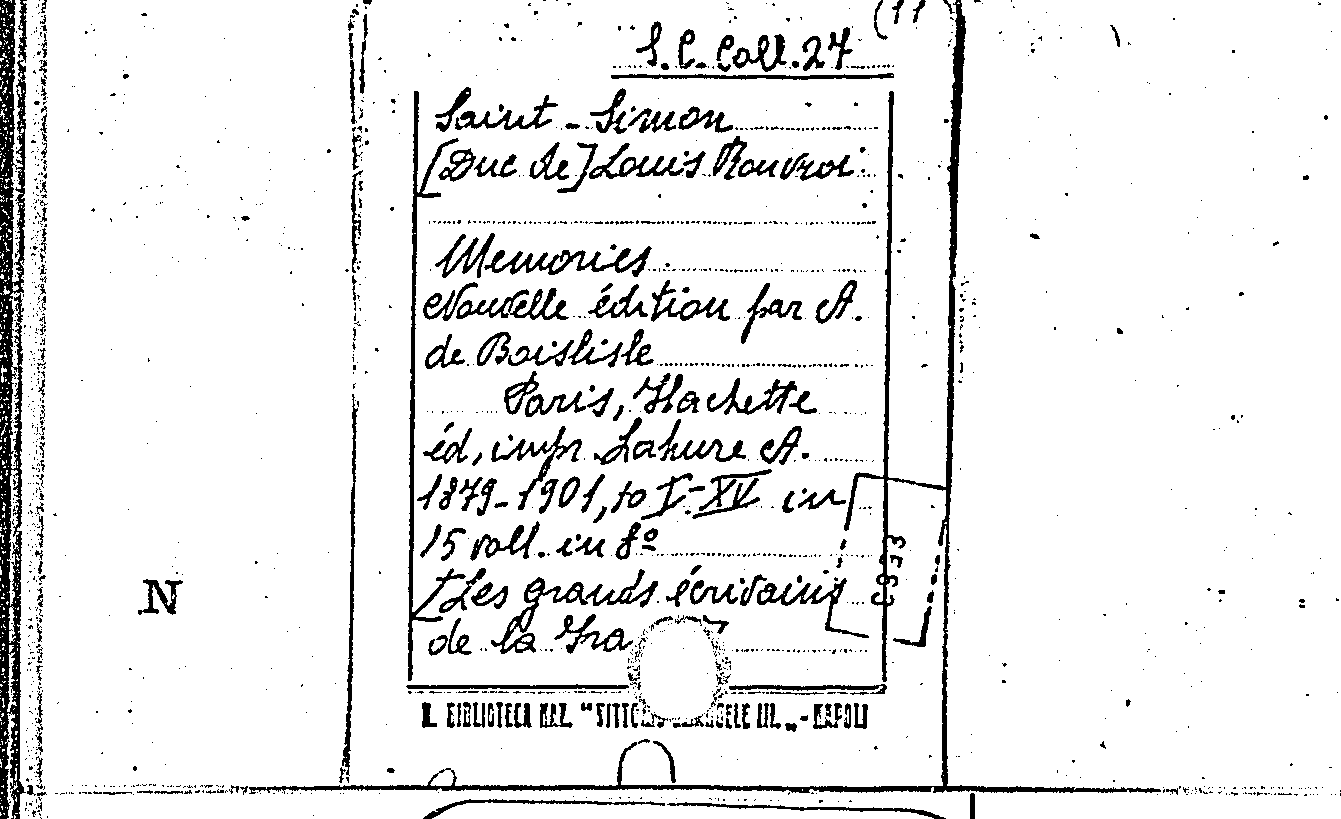 (11
S.C. Coll. 27
Saint-Simon
[Duc de] Louis Rouvroi
Memories
Nouvelle édition par A.
de Boislisle
Paris, Hachette
éd, impr. Lahure A.
1879-1901, to I-XV in
15 voll. in 8º
[Les grands écrivains
de la Fra
C933
N
R. BIBLIOTECA NAZ. "VITTO ELE III. „ - NAPOLI